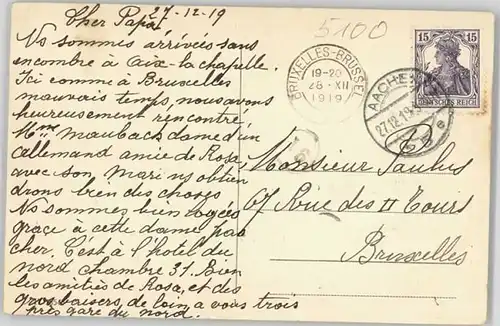 Cher Papa
27-12-19
Ns sommes arrivés sans
encombre à Aix-la-chapelle.
Ici comme à Bruxelles
mauvais temps, nous avons
heureusement rencontré
Mme Maubach dame d'un
allemand amie de Rosa
avec son mari ns obtien
drons bien des choses
Ns sommes bien logées
grace à cette dame pas
cher. C'est à l'hotel du
nord chambre 31. Bien
les amitiés de Rosa, et des
gros baisers, de loin a vous trois
près gare du nord.
5100
BRUXELLES-BRUSSEL
19-20
28-XII
1919
AACHEN
27.12.19
15 15
DEUTSCHES REICH
Monsieur Paulus
67 Rue des II Tours
Bruxelles